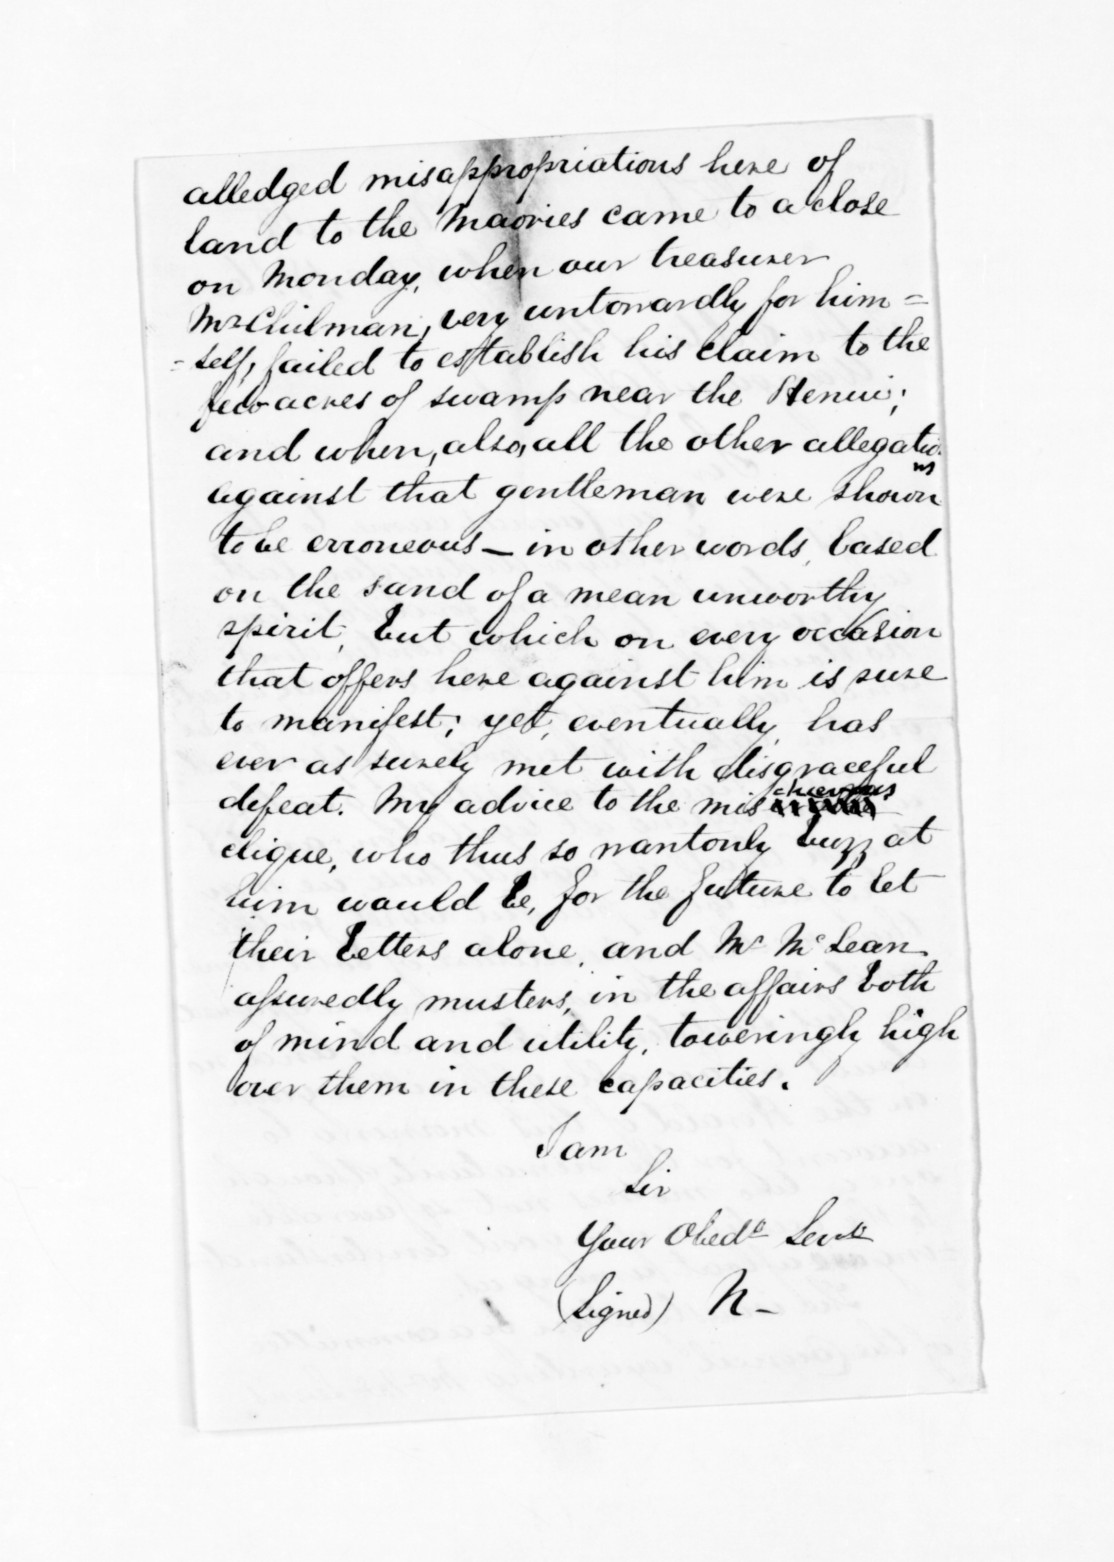 alledged misappropriations here of
land to the Maories came to a close
on Monday, when our treasurer
Mr Chilman, very untowardly for him=
=self, failed to establish his claim to the
few acres of swamp near the Henui;
and when, also, all the other allegations
against that gentleman were shown
to be erroneous — in other words, based
on the sand of a mean unworthy
spirit, but which on every occasion
that offers here against him is sure
to manifest; yet, eventually, has
ever as surely met with disgraceful
defeat. My advice to the mischievous
clique, who thus so wantonly buzz at
him would be, for the future to let
their betters alone, and Mr McLean
assuredly musters, in the affairs both
of mind and utility, toweringly high
over them in these capacities.
I am
Sir
Your Obedt Servt
(Signed) N –